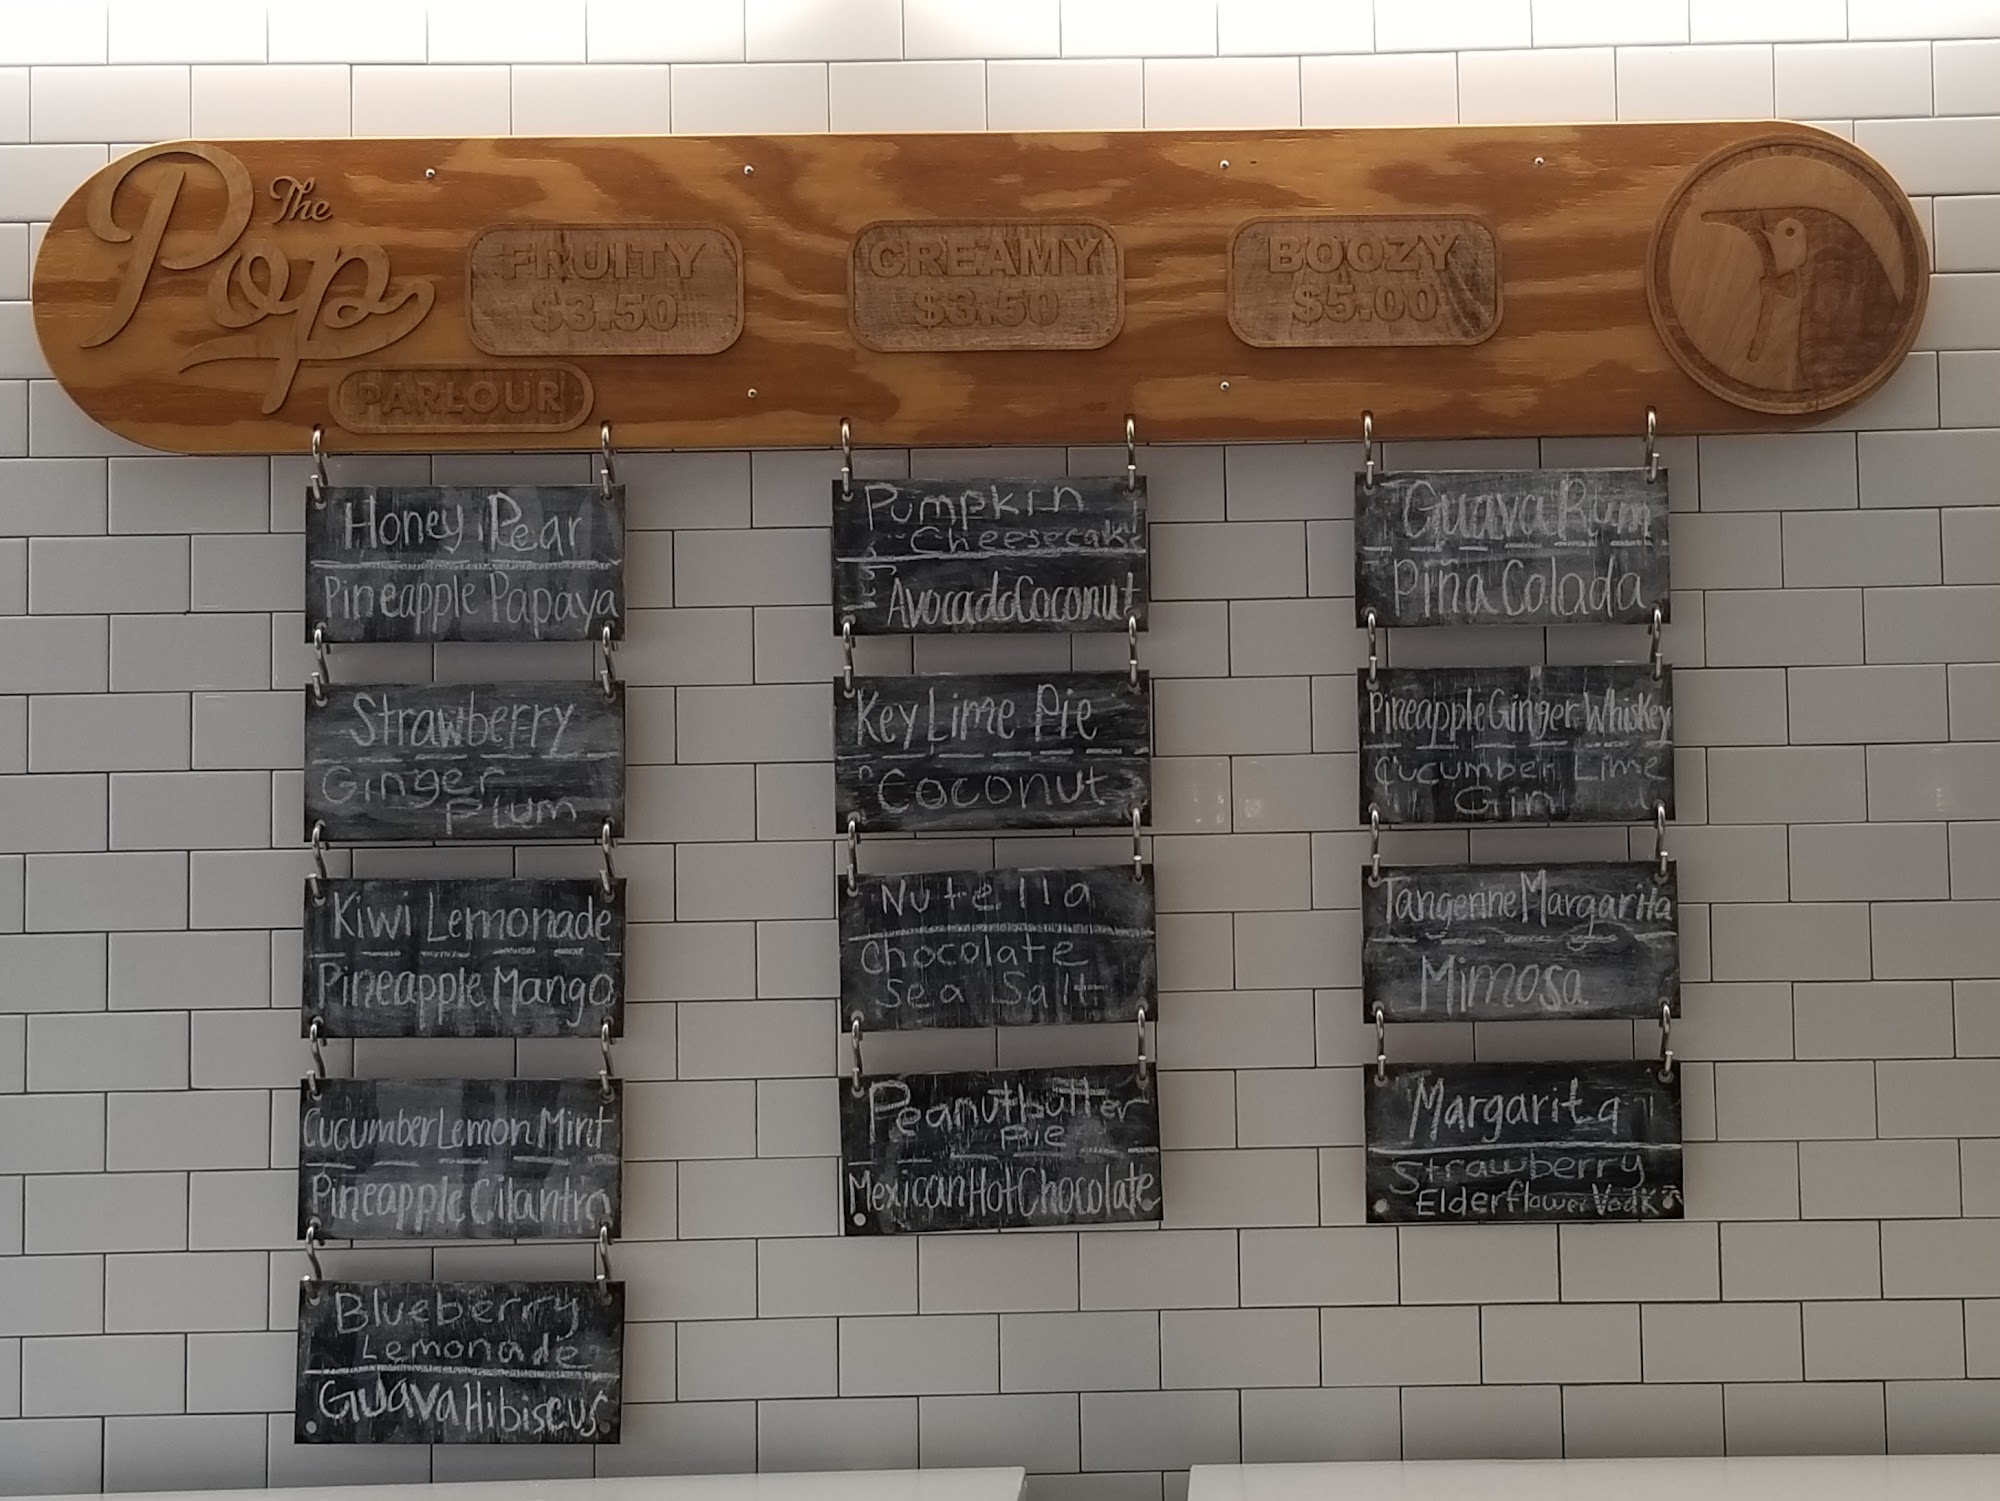 The
Pop
PARLOUR
FRUITY
$3.50
Honey Pear
Pineapple Papaya
Strawberry
Ginger
Plum
Kiwi Lemonade
Pineapple Mango
Cucumber Lemon Mint
Pineapple Cilantro
Blueberry
Lemonade
Guava Hibiscus
CREAMY
$3.50
Pumpkin
Cheesecake
Avocado Coconut
Key Lime Pie
Coconut
Nutella
Chocolate
Sea Salt
Peanutbutter
Pie
Mexican Hot Chocolate
BOOZY
$5.00
Guava Rum
Piña Colada
Pineapple Ginger Whiskey
Cucumber Lime
Gin
Tangerine Margarita
Mimosa
Margarita
Strawberry
Elderflower Vodka